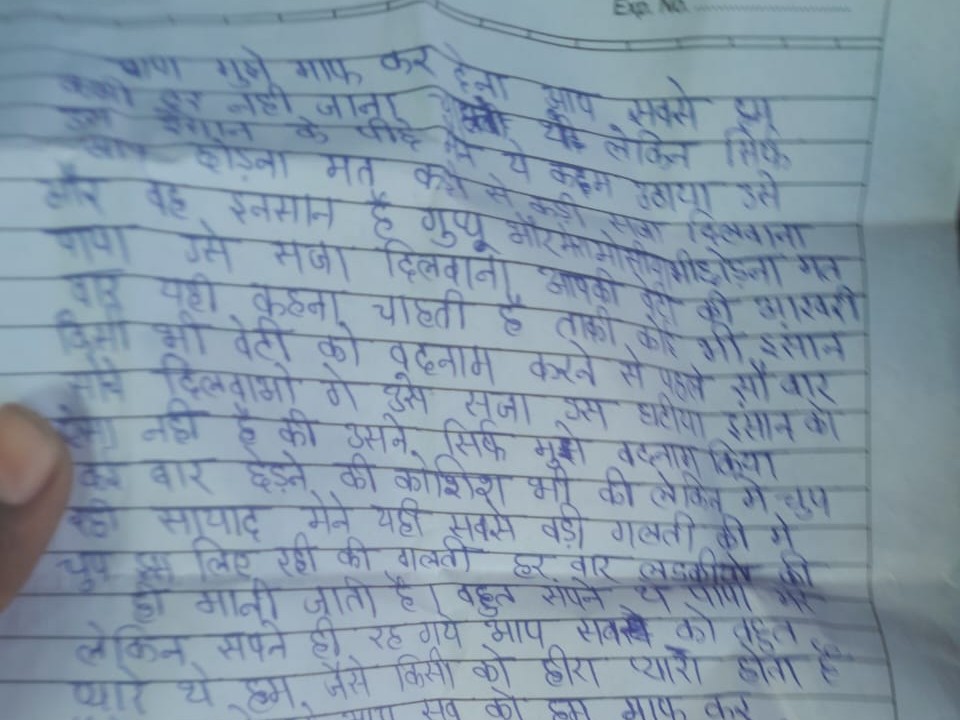 Exp. No.
पापा मुझे माफ कर देना आप सबसे हम
दूर नही जाना यह लेकिन सिर्फ
इस इंसान के पीछे मैंने ये कदम उठाया उसे
आप छोड़ना मत कड़ी से कड़ी सजा दिलवाना
और वह इनसान है गुप्पू और भी छोड़ना मत
पापा उसे सजा दिलवाना आपकी बेटी की आखरी
बार यही कहना चाहती है ताकी कोई भी इंसान
किसी भी वेटी को वदनाम करने से पहले सौ वार
सोचे दिलवाओ गे उसे सजा उस घटीया इंसान को
ऐसा नही है की उसने सिर्फ मुझे वदनाम किया
कई बार छेड़ने की कोशिश भी की लेकिन मे चुप
रही सायाद मेने यही सबसे वड़ी गलती की मे
चुप इस लिए रही की गलती हर वार लडकीयो की
ही मानी जाती है। वहुत सपने थे पापा मेरे
लेकिन सपने ही रह गये आप सबको वहुत
प्यारे थे हम जैसे किसी को हीरा प्यारा होता है
आप सब को हम माफ कर